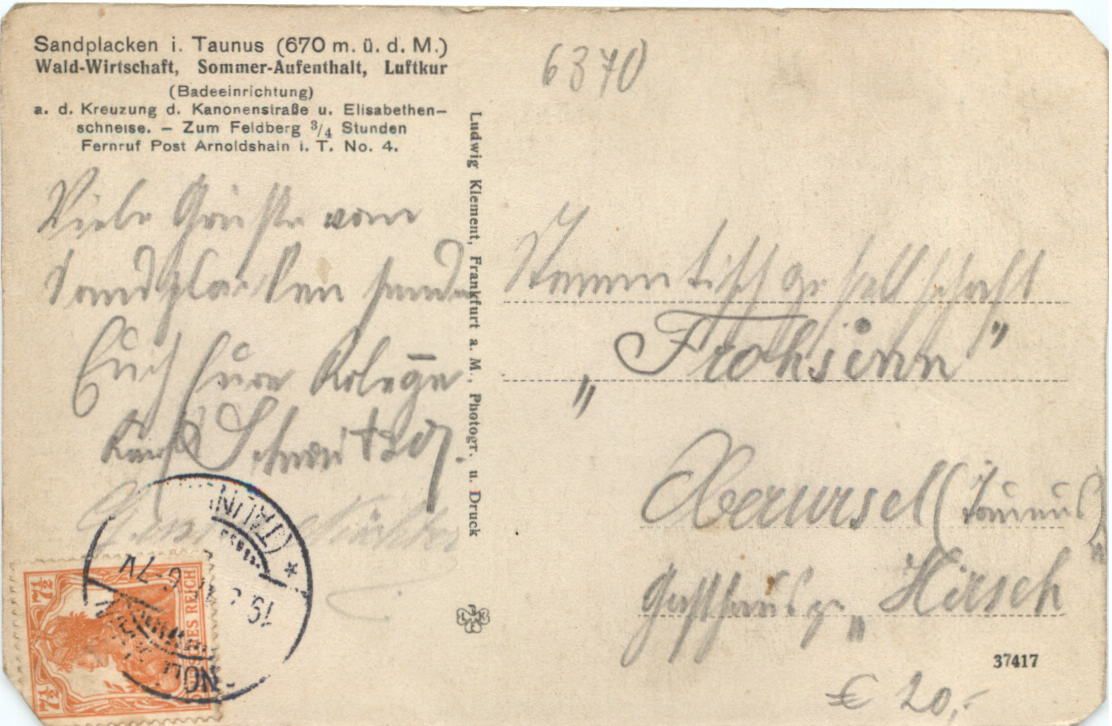 Sandplacken i. Taunus (670 m. ü. d. M.)
Wald-Wirtschaft, Sommer-Aufenthalt, Luftkur
(Badeeinrichtung)
a. d. Kreuzung d. Kanonenstraße u. Elisabethen-
schneise. – Zum Feldberg 3/4 Stunden
Fernruf Post Arnoldshain i. T. No. 4.
Viele Grüße vom
Sandplacken sendet
Euch Eure Kolegen
Karl
Ludwig Klement, Frankfurt a. M., Photogr. u. Druck
6370
Stammtischgesellschaft
„Frohsinn"
Oberursel (Taunus)
Gasthaus z. „Hirsch
37417
€ 20,-
7½ 7½
DEUTSCHES REICH
(TAUN